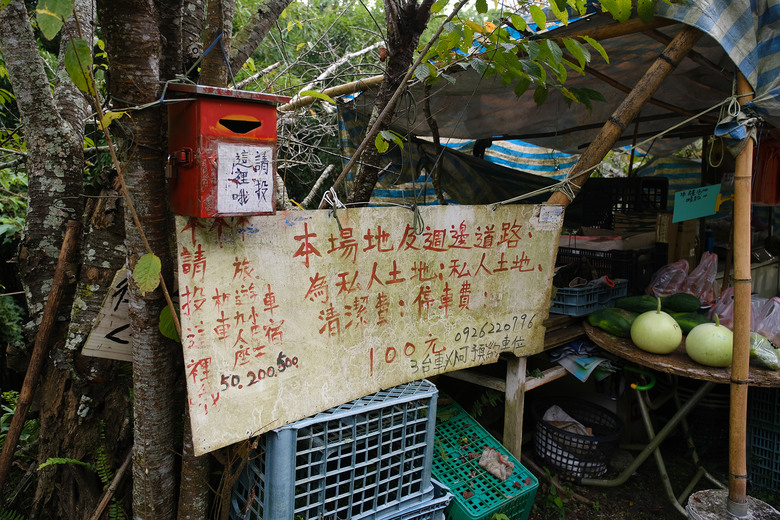 請投
這裡哦
本場地及週邊道路:
為私人土地;私人土地、
清潔費:停車費:
100元
0926220796
3台車以何預約車位
請投這裡
機車
車宿
50.200.500